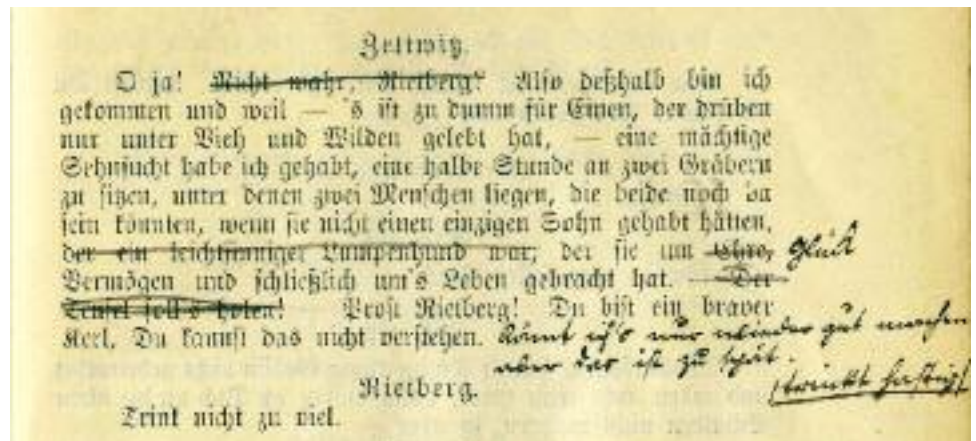 Zettwitz.
O ja! Nicht wahr, Rietberg? Also deßhalb bin ich
gekommen und weil — 's ist zu dumm für Einen, der drüben
nur unter Vieh und Wilden gelebt hat, — eine mächtige
Sehnsucht habe ich gehabt, eine halbe Stunde an zwei Gräbern
zu sitzen, unter denen zwei Menschen liegen, die beide noch da
sein könnten, wenn sie nicht einen einzigen Sohn gehabt hätten,
der ein leichtsinniger Lumpenhund war, der sie um Ehre, Glück
Vermögen und schließlich um's Leben gebracht hat. — Der
Teufel soll's holen! Prost Rietberg! Du bist ein braver
Kerl. Du kannst das nicht verstehen. Könnt ich's nur wieder gut machen
aber das ist zu spät.
(trinkt hastig)
Rietberg.
Trink nicht zu viel.